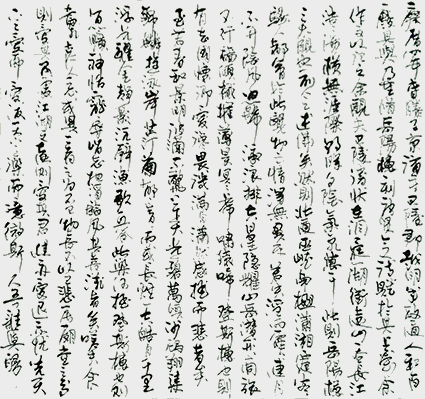 慶曆四年春滕子京謫守巴陵郡越明年政通人和百
廢具興乃重修岳陽樓增其舊制刻唐賢今人詩賦於其上屬余
作文以記之余觀夫巴陵勝狀在洞庭一湖銜遠山吞長江
浩浩湯湯橫無際涯朝暉夕陰氣象萬千此則岳陽樓
之大觀也前人之述備矣然則北通巫峽南極瀟湘遷客
騷人多會於此覽物之情得無異乎若夫霪雨霏霏連月
不開陰風怒號濁浪排空日星隱耀山岳潛形商旅
不行檣傾楫摧薄暮冥冥虎嘯猿啼登斯樓也則
有去國懷鄉憂讒畏譏滿目蕭然感極而悲者矣
至若春和景明波瀾不驚上下天光一碧萬頃沙鷗翔集
錦鱗游泳岸芷汀蘭郁郁青青而或長煙一空皓月千里
浮光躍金靜影沉璧漁歌互答此樂何極登斯樓也則
有心曠神怡寵辱偕忘把酒臨風其喜洋洋者矣嗟夫余
嘗求古仁人之心或異二者之為何哉不以物喜不以己悲居廟堂之高
則憂其民處江湖之遠則憂其君是進亦憂退亦憂先天
下之憂而憂後天下之樂而樂乎噫微斯人吾誰與歸